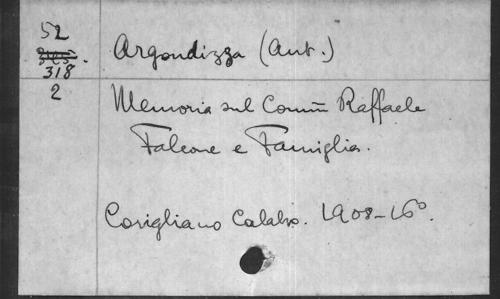 52
318
2
Argondizza (Ant.)
Memoria sul Comm Raffaele
Falcone e Famiglia.
Corigliano Calabro. 1908-16°.